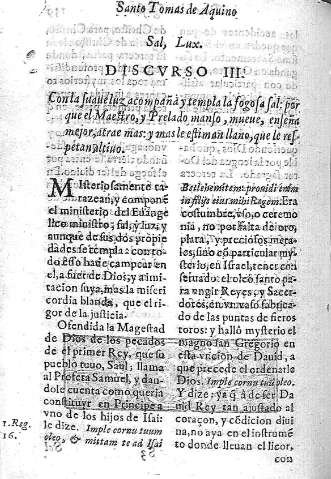 Santo Tomas de Aquino
Sal, Lux.
DISCVRSO III.
Con la suaue luz acompaña y templa la fogosa sal: por
que el Maestro, y Prelado manso, mueue, enseña
mejor, atrae mas: y mas le estiman llano, que le res-
petan altino.
MIsteriosamente ta-
razean, y compone
el ministerio del Euãge
lico ministro; sal, y luz, y
aunque de sus dos propie
dades se templa: con to-
do esso hade campear en
el, a fuer de Dios; y a imi-
tacion suya, mas la miseri
cordia blanda, que el ri-
gor de la justicia.
Ofendida la Magestad
de Dios de los pecados
de el primer Rey, que su
pueblo tuuo, Saul; llama
al Profeta Samuel, y dan
dole cuenta como queria
constituyr en Principe a
vno de los hijos de Isai:
le dize. Imple cornu tuum
oleo, & mittam te ad Isai
1. Reg.
16.
Bethlehemitem: prouidi enim
in filijs eius mihi Regem. Era
costumbre, vso, o ceremo
nia, no por falta de oro,
plata, y preciosos meta-
les, sino cõ particular my
sterio, en Israel, tener con
seruado el oleo santo pa-
ra vngir Reyes, y Sacer-
dotes, en vn vaso fabrica-
do de las puntas de fieros
toros: y halló mysterio el
magno san Gregorio en
esta vncion de Dauid, a
que precede el ordenarle
Dios. Imple cornu tuũ oleo.
Y dize; ya q̃ á de ser Da
uid Rey tan ajustado al
coraçon, y cõdicion diui
na, no aya en el instrumẽ
to donde lleuan el licor,
cosa